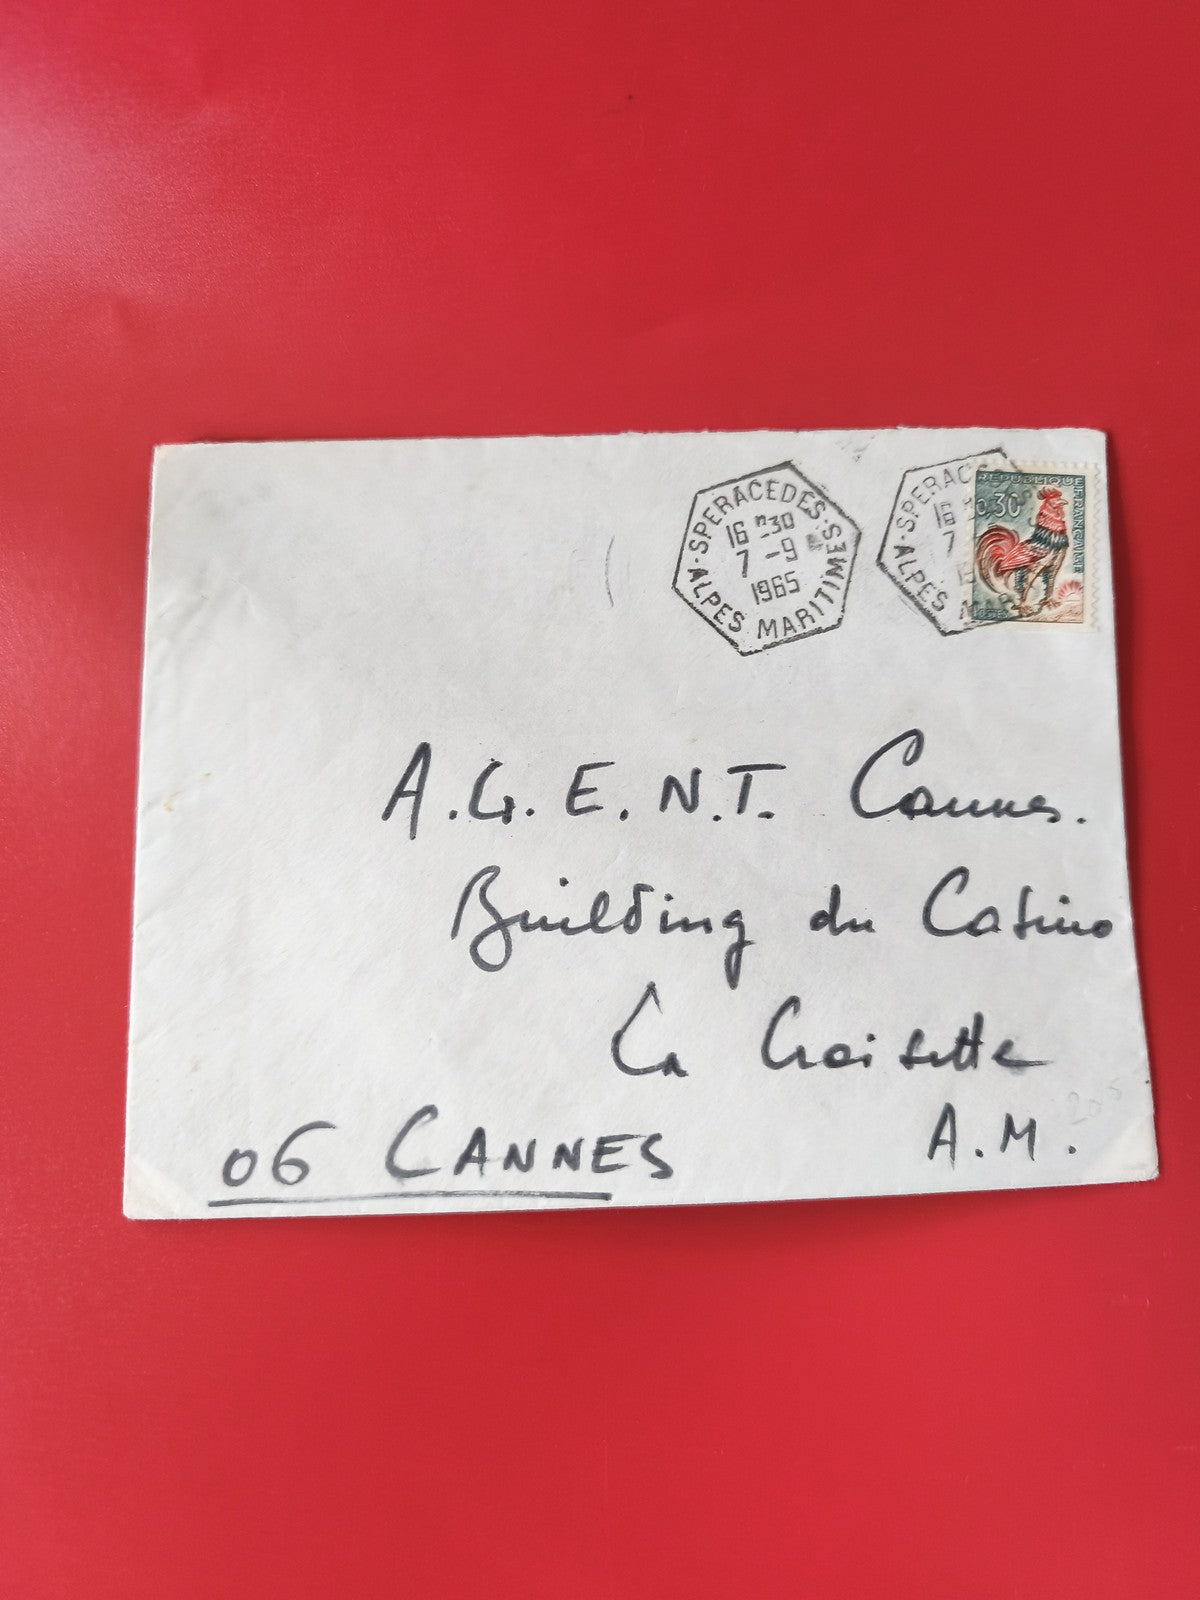 SPERACEDES
16 H30
7 -9
1965
ALPES MARITIMES
SPERACEDES
7
ALPES MAR
REPUBLIQUE
FRANCAISE
0,30
A.G.E.N.T. Cannes.
Building du Casino
La Croisette
A.M.
06 CANNES